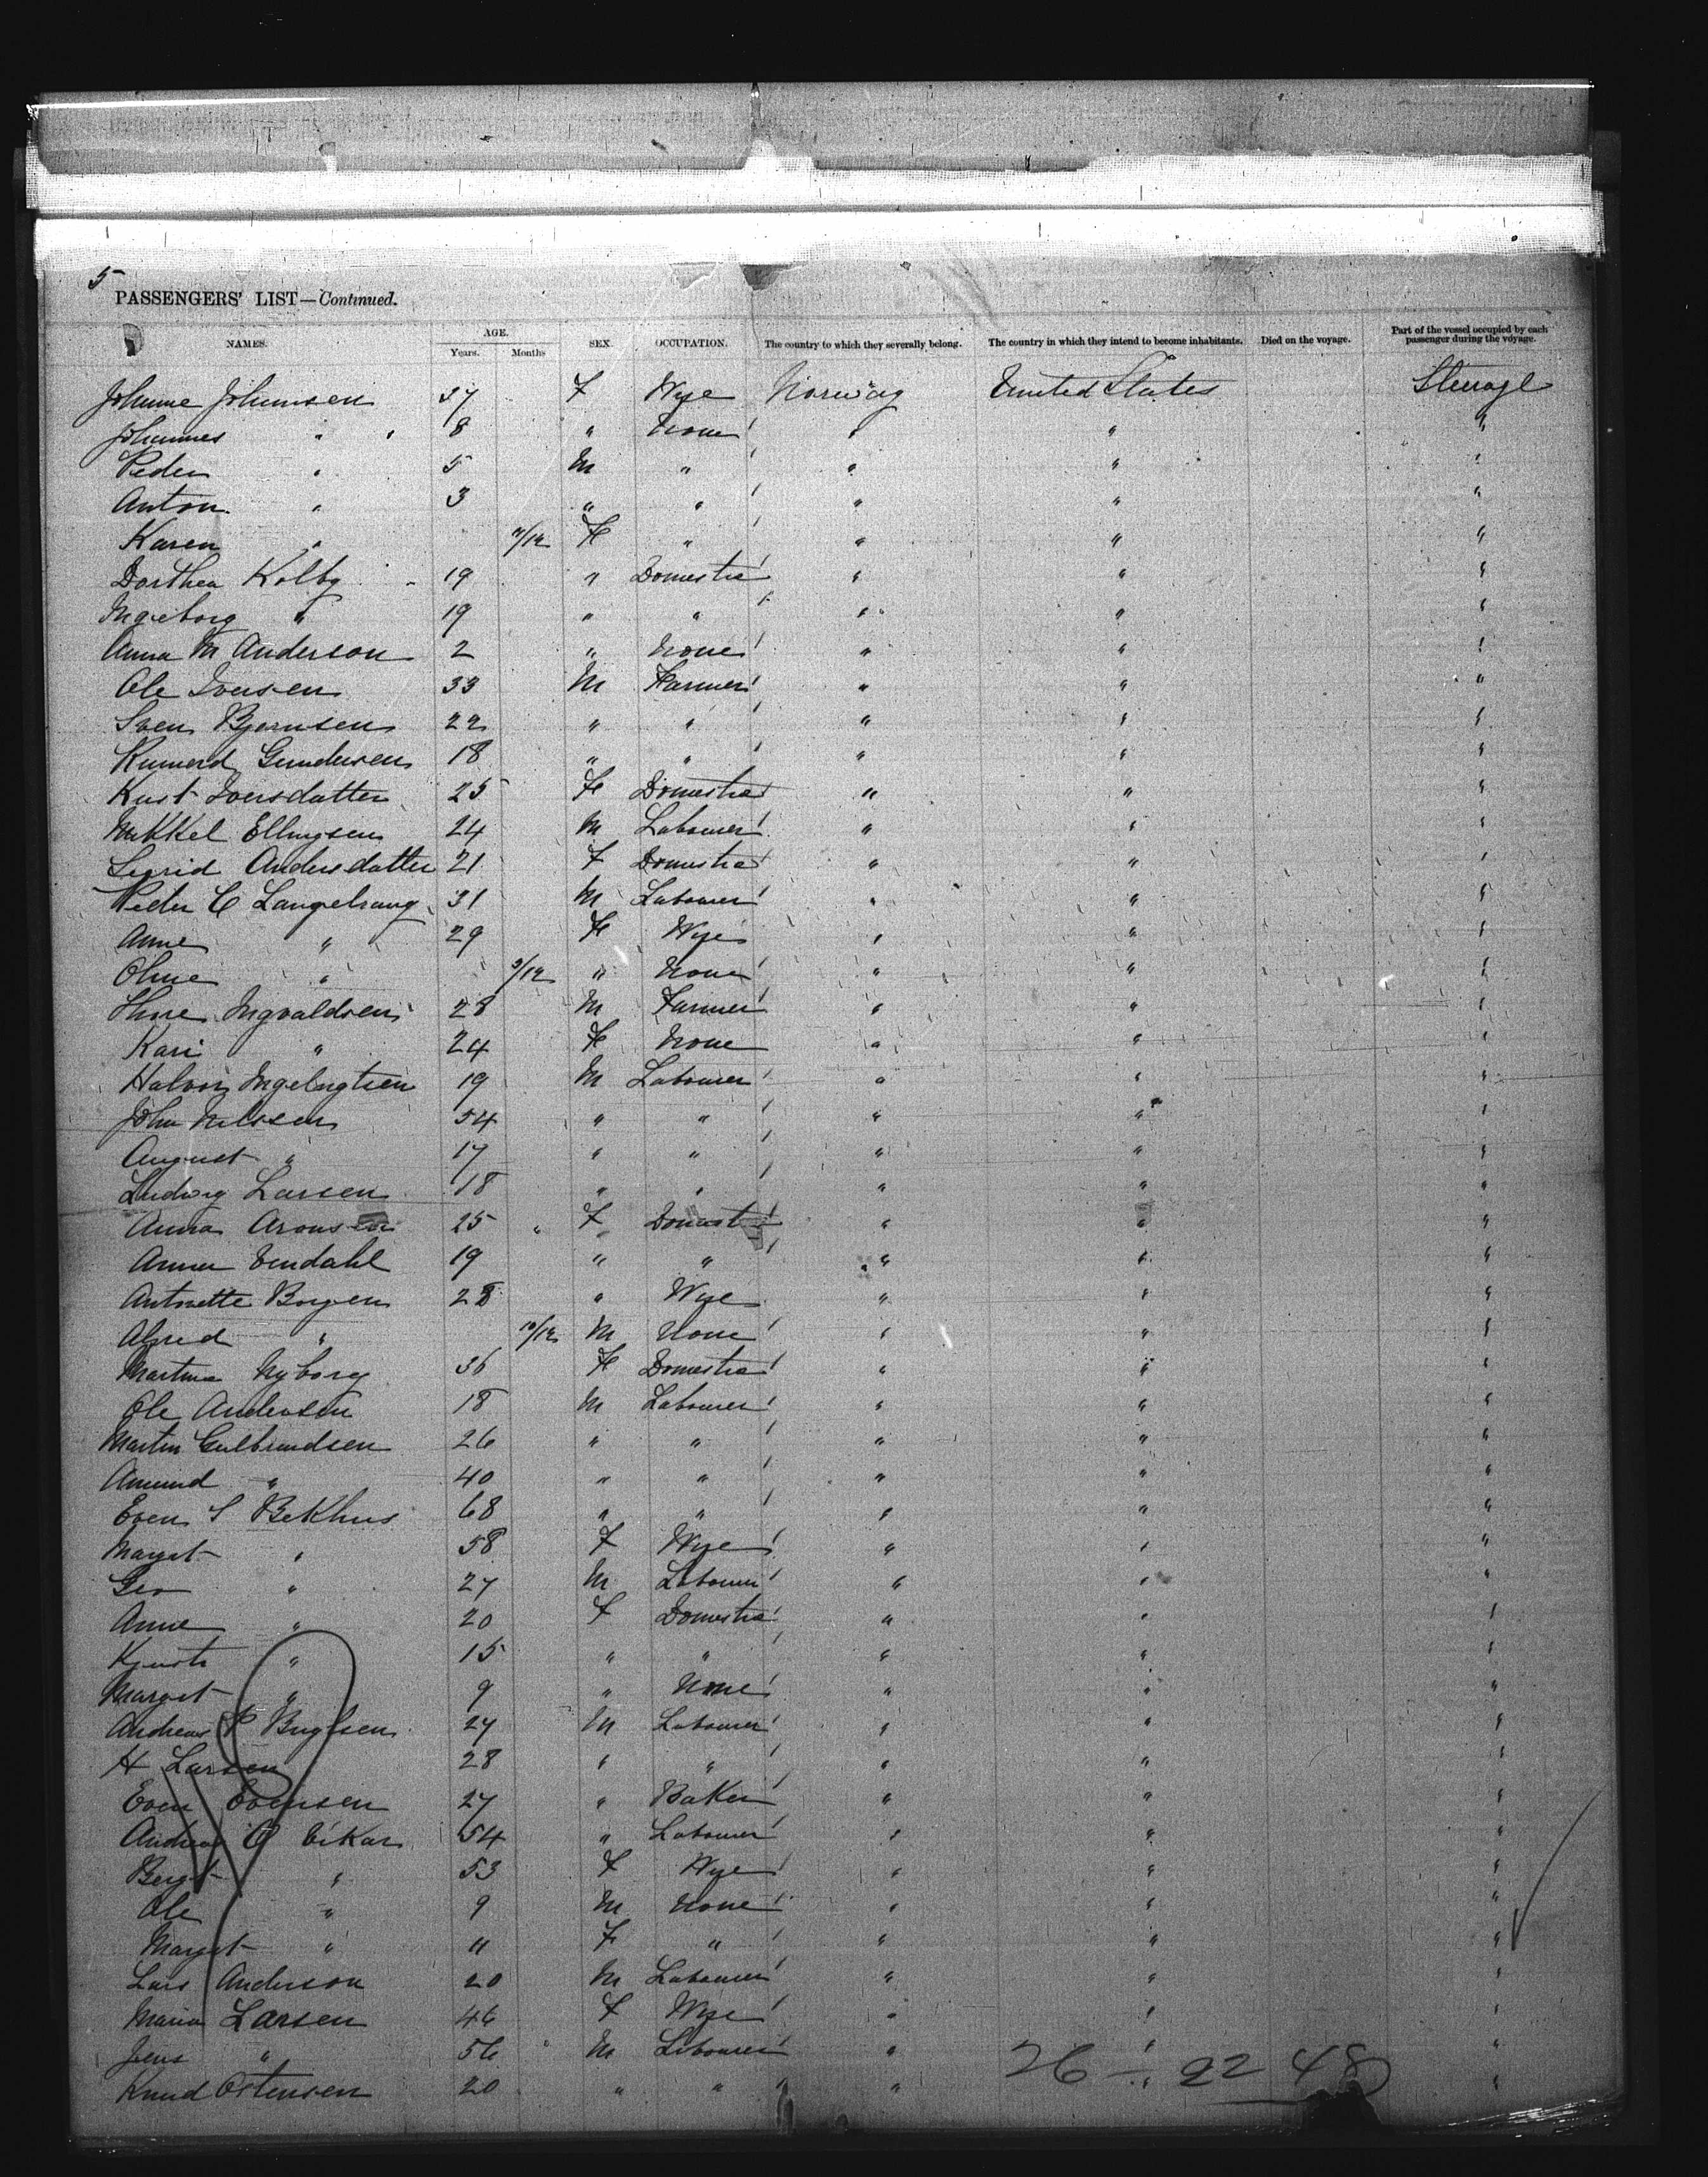 5
PASSENGERS' LIST—Continued.
NAMES. AGE. Years. Months SEX. OCCUPATION. The country to which they severally belong. The country in which they intend to become inhabitants. Died on the voyage. Part of the vessel occupied by each passenger during the voyage.
Johanne Johannsen 37 F Wife Norway United States Steerage
Johannes " 8 " None " " "
Peder " 5 M " " " "
Anton " 3 " " " " "
Karen " F " " " "
Dorthea Kolby 19 " Domestic " " "
Ingeborg " 19 " " " " "
Anna M Anderson 2 " None " " "
Ole Iversen 33 M Farmer " " "
Sven Bjornsen 22 " " " " "
Gundersen 18 " " " " "
Iversdatter 25 F Domestic " " "
Mikkel Ellingsen 24 M Labourer " " "
Sigrid Andersdatter 21 F Domestic " " "
Peder C 31 M Labourer " " "
Anne " 29 F Wife " " "
" " None " " "
Ingvaldsen 28 M Farmer " " "
Kari " 24 F None " " "
Halvor 19 M Labourer " " "
John Nilssen 54 " " " " "
August " 17 " " " " "
Ludwig Larsen 18 " " " " "
Anna Aronsen 25 " F Domestic " " "
Endahl 19 " " " " "
Antonette Borgen 28 " Wife " " "
Alfred " 10/12 M None " " "
Martina Nyborg 36 F Domestic " " "
Ole Andersen 18 M Labourer " " "
Martin Gulbrandsen 26 " " " " "
Amund " 40 " " " " "
Even S Bekhus 68 " " " " "
Margit " 58 F Wife " " "
" 27 M Labourer " " "
Anne " 20 F Domestic " " "
" 15 " " " " "
Margit " 9 " None " " "
Andreas 27 M Labourer " " "
H Larsen 28 " " " " "
Even Evensen 27 " Baker " " "
Andreas O 54 " Labourer " " "
Bergit " 53 F Wife " " "
Ole " 9 M None " " "
Margit " 11 F " " " "
Lars Anderson 20 M Labourer " " "
Maria Larsen 46 F Wife " " "
Jens " 56 M Labourer " " "
Knud Ostensen 20 " " " " "
26 — 22 48